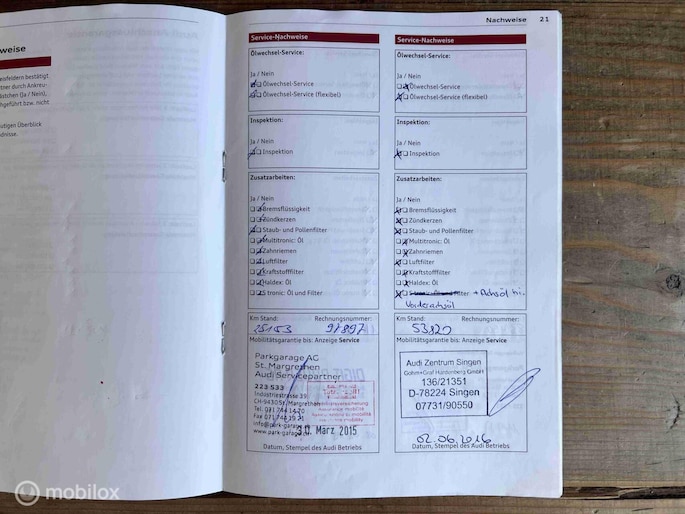 weise
Nachweise 21
Service-Nachweise
Ölwechsel-Service:
Ja / Nein
Ölwechsel-Service
Ölwechsel-Service (flexibel)
Inspektion:
Ja / Nein
Inspektion
Zusatzarbeiten:
Ja / Nein
Bremsflüssigkeit
Zündkerzen
Staub- und Pollenfilter
Multitronic: Öl
Zahnriemen
Luftfilter
Kraftstofffilter
Haldex: Öl
S tronic: Öl und Filter
Km Stand: Rechnungsnummer:
25153 97897
Mobilitätsgarantie bis: Anzeige Service
Parkgarage AG
St. Margrethen
Audi Servicepartner
223 533
Industriestrasse 39
30. März 2015
Datum, Stempel des Audi Betriebs
Service-Nachweise
Ölwechsel-Service:
Ja / Nein
Ölwechsel-Service
Ölwechsel-Service (flexibel)
Inspektion:
Ja / Nein
Inspektion
Zusatzarbeiten:
Ja / Nein
Bremsflüssigkeit
Zündkerzen
Staub- und Pollenfilter
Multitronic: Öl
Zahnriemen
Luftfilter
Kraftstofffilter
Haldex: Öl
+ Achsöl hi.
Vorderachsöl
Km Stand: Rechnungsnummer:
53820
Mobilitätsgarantie bis: Anzeige Service
Audi Zentrum Singen
Gohm+Graf Hardenberg GmbH
136/21351
D-78224 Singen
07731/90550
02.06.2016
Datum, Stempel des Audi Betriebs
mobilox